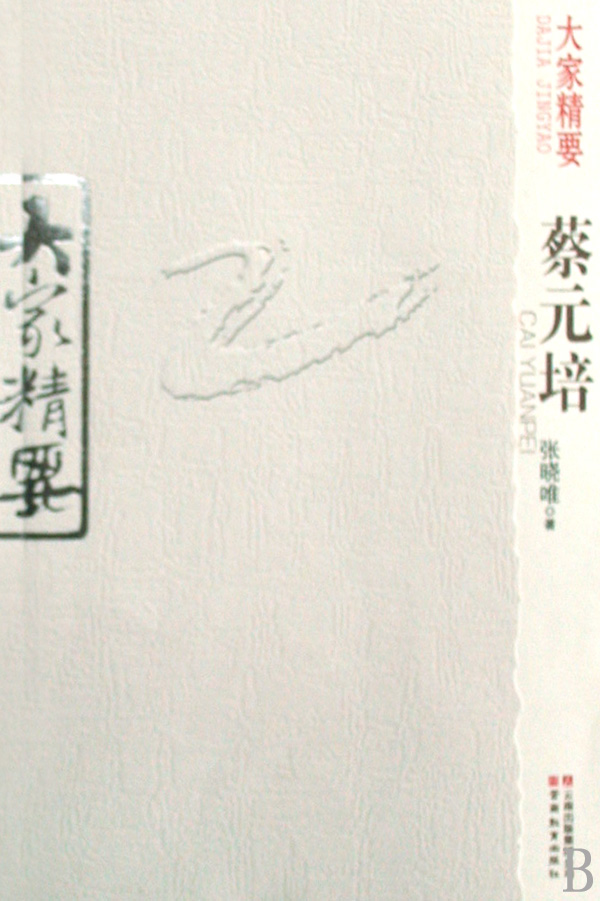 大家精要
DAJIA JINGYAO
蔡元培
CAI YUANPEI
张晓唯◎著
大家精要
云南出版集团
云南教育出版社
B